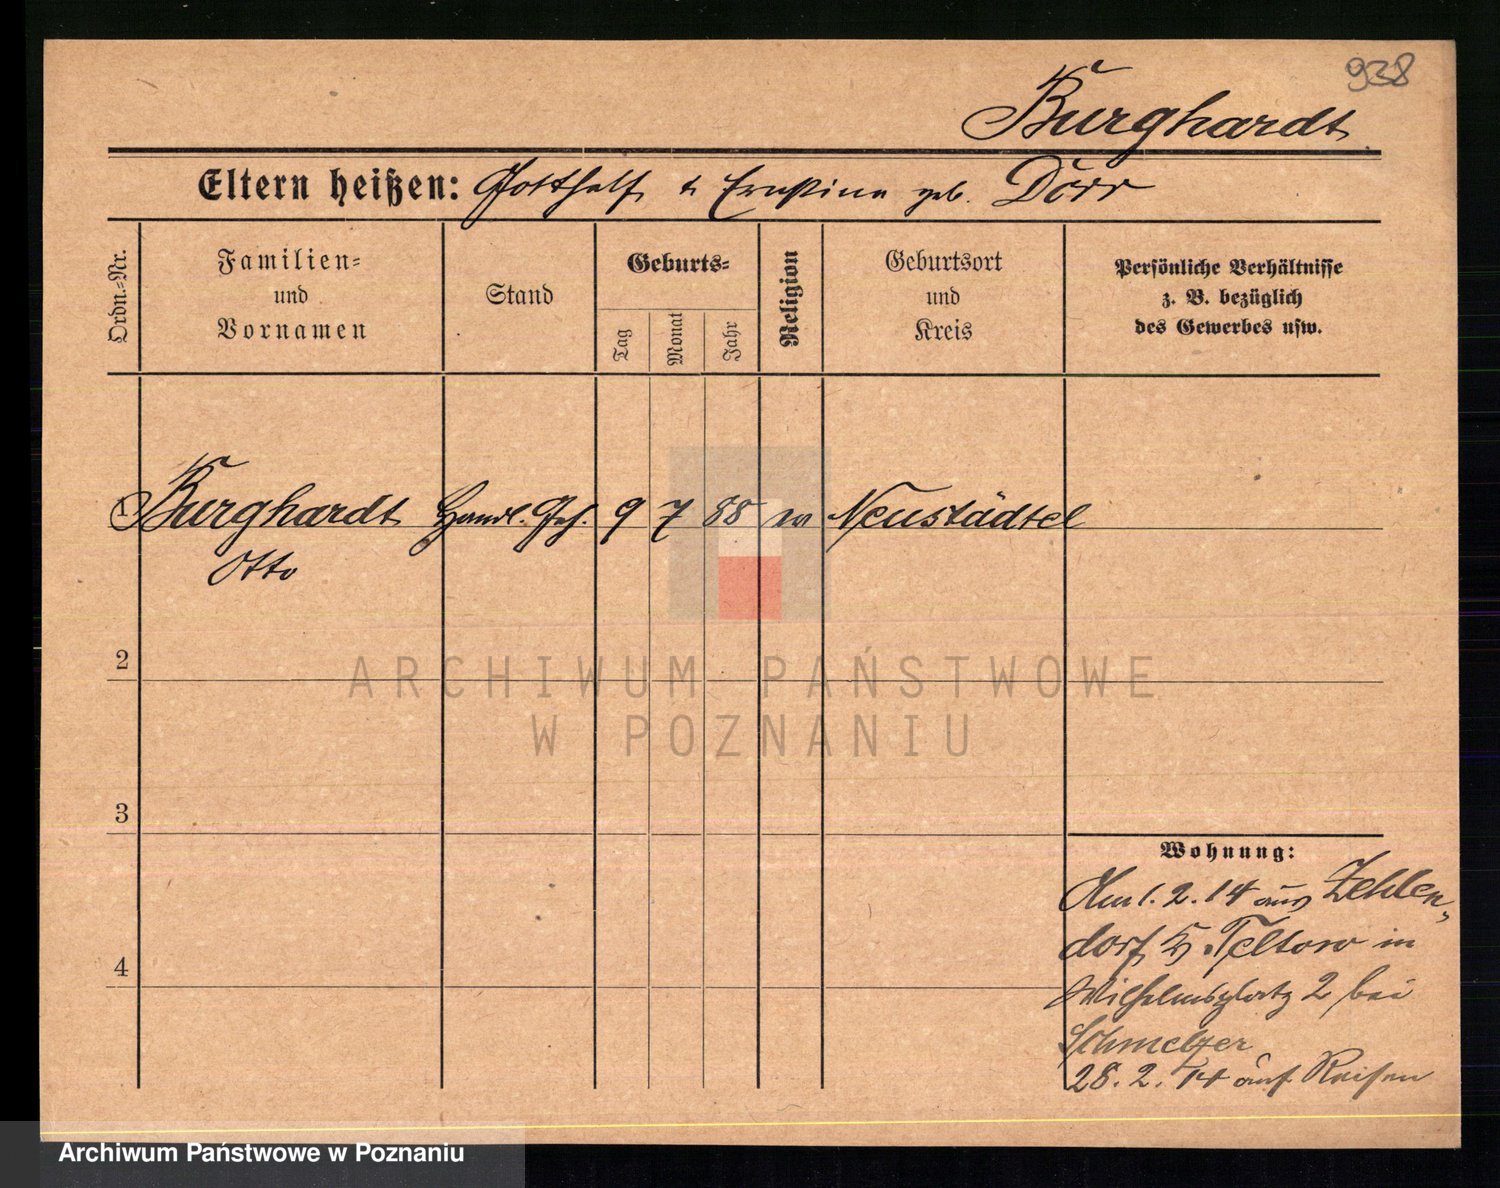 938
Burghardt
Eltern heißen: Gotthelf u Ernstine geb. Dörr
Ordn.-Nr.
Familien-
und
Vornamen
Stand
Geburts-
Tag
Monat
Jahr
Religion
Geburtsort
und
Kreis
Persönliche Verhältnisse
z. B. bezüglich
des Gewerbes usw.
1 Burghardt Handl. Geh. 9 7 88 Neustädtel
Otto
2
3
4
Wohnung:
Am 1. 2. 14 aus Zehlen-
dorf Teltow in
Wilhelmsplatz 2 bei
Schmelzer
28. 2. 14 auf Reisen
ARCHIWUM PAŃSTWOWE
W POZNANIU
Archiwum Państwowe w Poznaniu